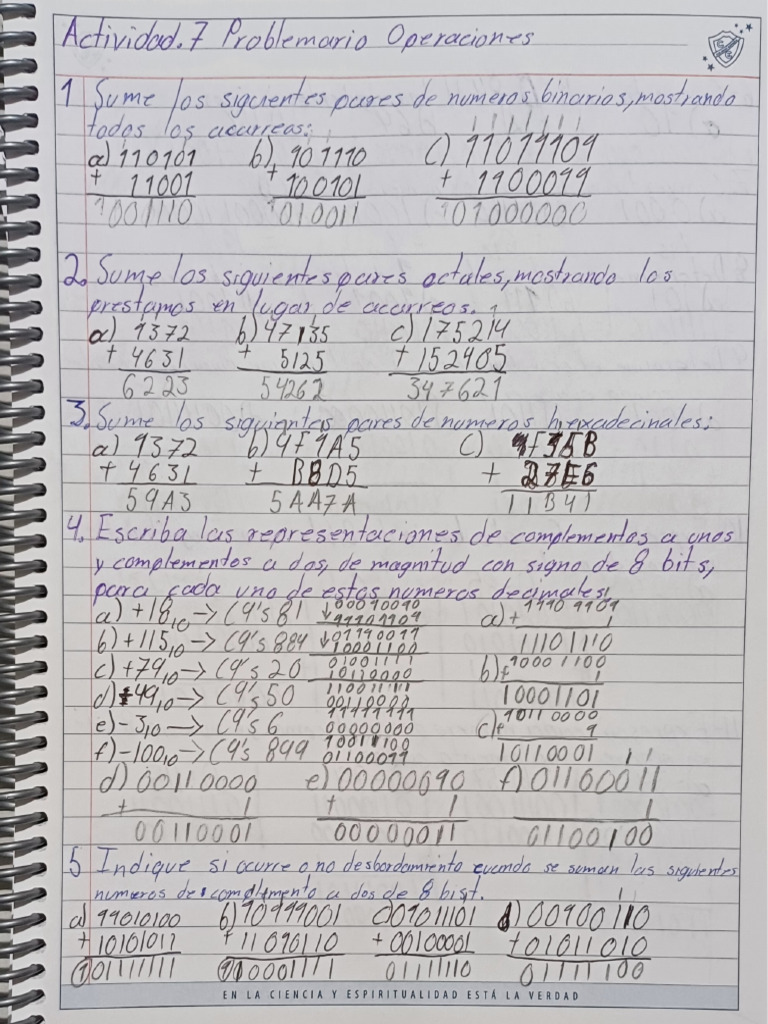 Actividad.7 Problemario Operaciones
1 Sume los siguientes pares de numeros binarios, mostrando
todos los acarreos:
1 1 1 1 1 1 1
a) 110101 b) 101110 c) 11011101
+ 11001 + 100101 + 1100011
1001110 1010011 101000000
2. Sume los siguientes pares octales, mostrando los
prestamos en lugar de acarreos.
a) 1372 b) 47135 c) 175214
+ 4631 + 5125 + 152405
6223 54262 347621
3. Sume los siguientes pares de numeros hrexadecinales:
a) 1372 b) 4F1A5 c)
+ 4631 + B8D5 +
59A3 5AA7A 11B41
4. Escriba las representaciones de complementos a unos
y complementos a dos, de magnitud con signo de 8 bits,
para cada uno de estos numeros decimales:
a) +18₁₀ → C9's 81 ↓00010010 a) 11101101
11101101 + 1
b) +115₁₀ → C9's 884 ↓01110011 11101110
10001100 b) 10001100
c) +79₁₀ → C9's 20 01001111 + 1
10110000 10001101
d) 49₁₀ → C9's 50
00110000 c) 10110000
e) -3₁₀ → C9's 6 11111111 + 1
00000000
f) -100₁₀ → C9's 899 10011100 10110001
01100011
d) 00110000 e) f) 01100011
+ 1 + 1 + 1
00110001 00000011 01100100
5 Indique si ocurre o no desbordamiento cuando se suman las siguientes
numeros de complemento a dos de 8 bist.
a) 11010100 b) 10111001 c) 01011101 d) 00100110
+ 10101011 + 11010110 + 00100001 + 01011010
101111111 110001111 01111110 01111100
EN LA CIENCIA Y ESPIRITUALIDAD ESTÁ LA VERDAD